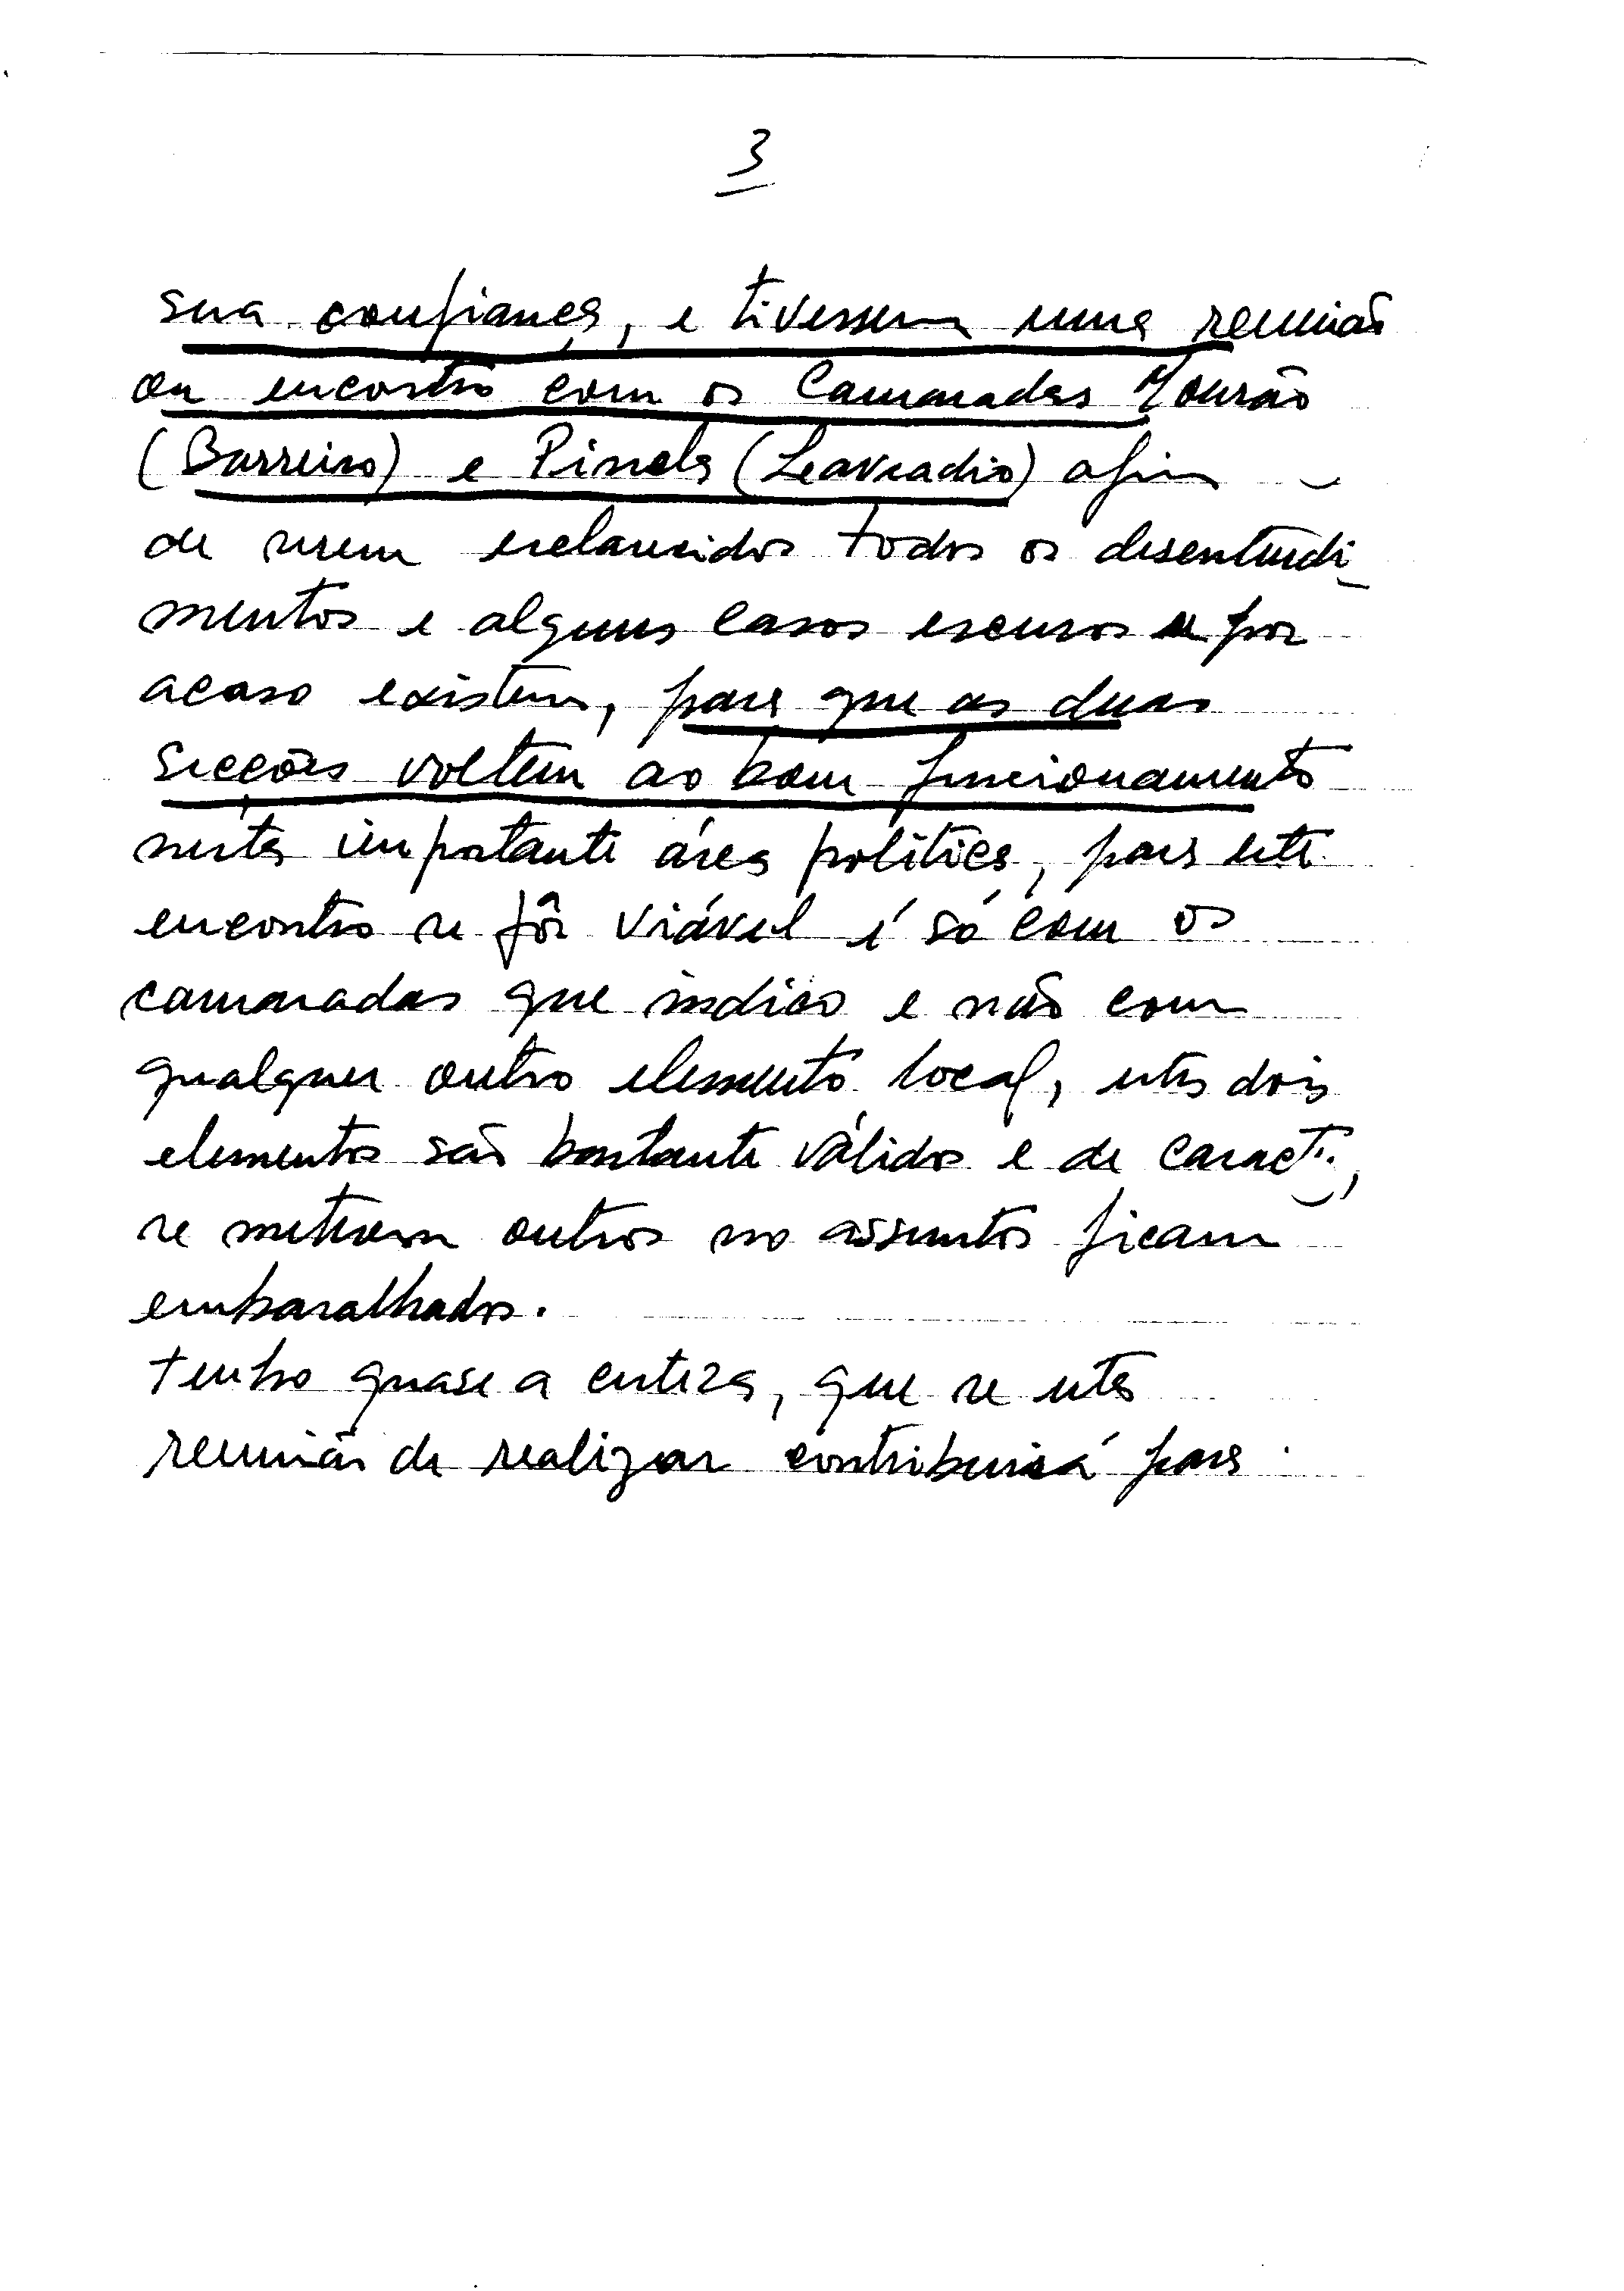 3
sua confiança, e tivessem uma reunião
ou encontro com os Camaradas Mourão
(Barreiro) e Pinela (Leavradio) afim
de serem esclarecidos todos os desentendi
mentos e alguns casos escuros se por
acaso existem, para que as duas
Secções voltem ao bom funcionamento
nesta importante área politica, pois este
encontro se fôr viável é só com os
camaradas que indico e não com
qualquer outro elemento local, estes dois
elementos são bastante válidos e de caract..,
se meterem outros no assuntos ficam
embaralhados.
Tenho quase a certeza, que se esta
reunião de realizar contribuirá para